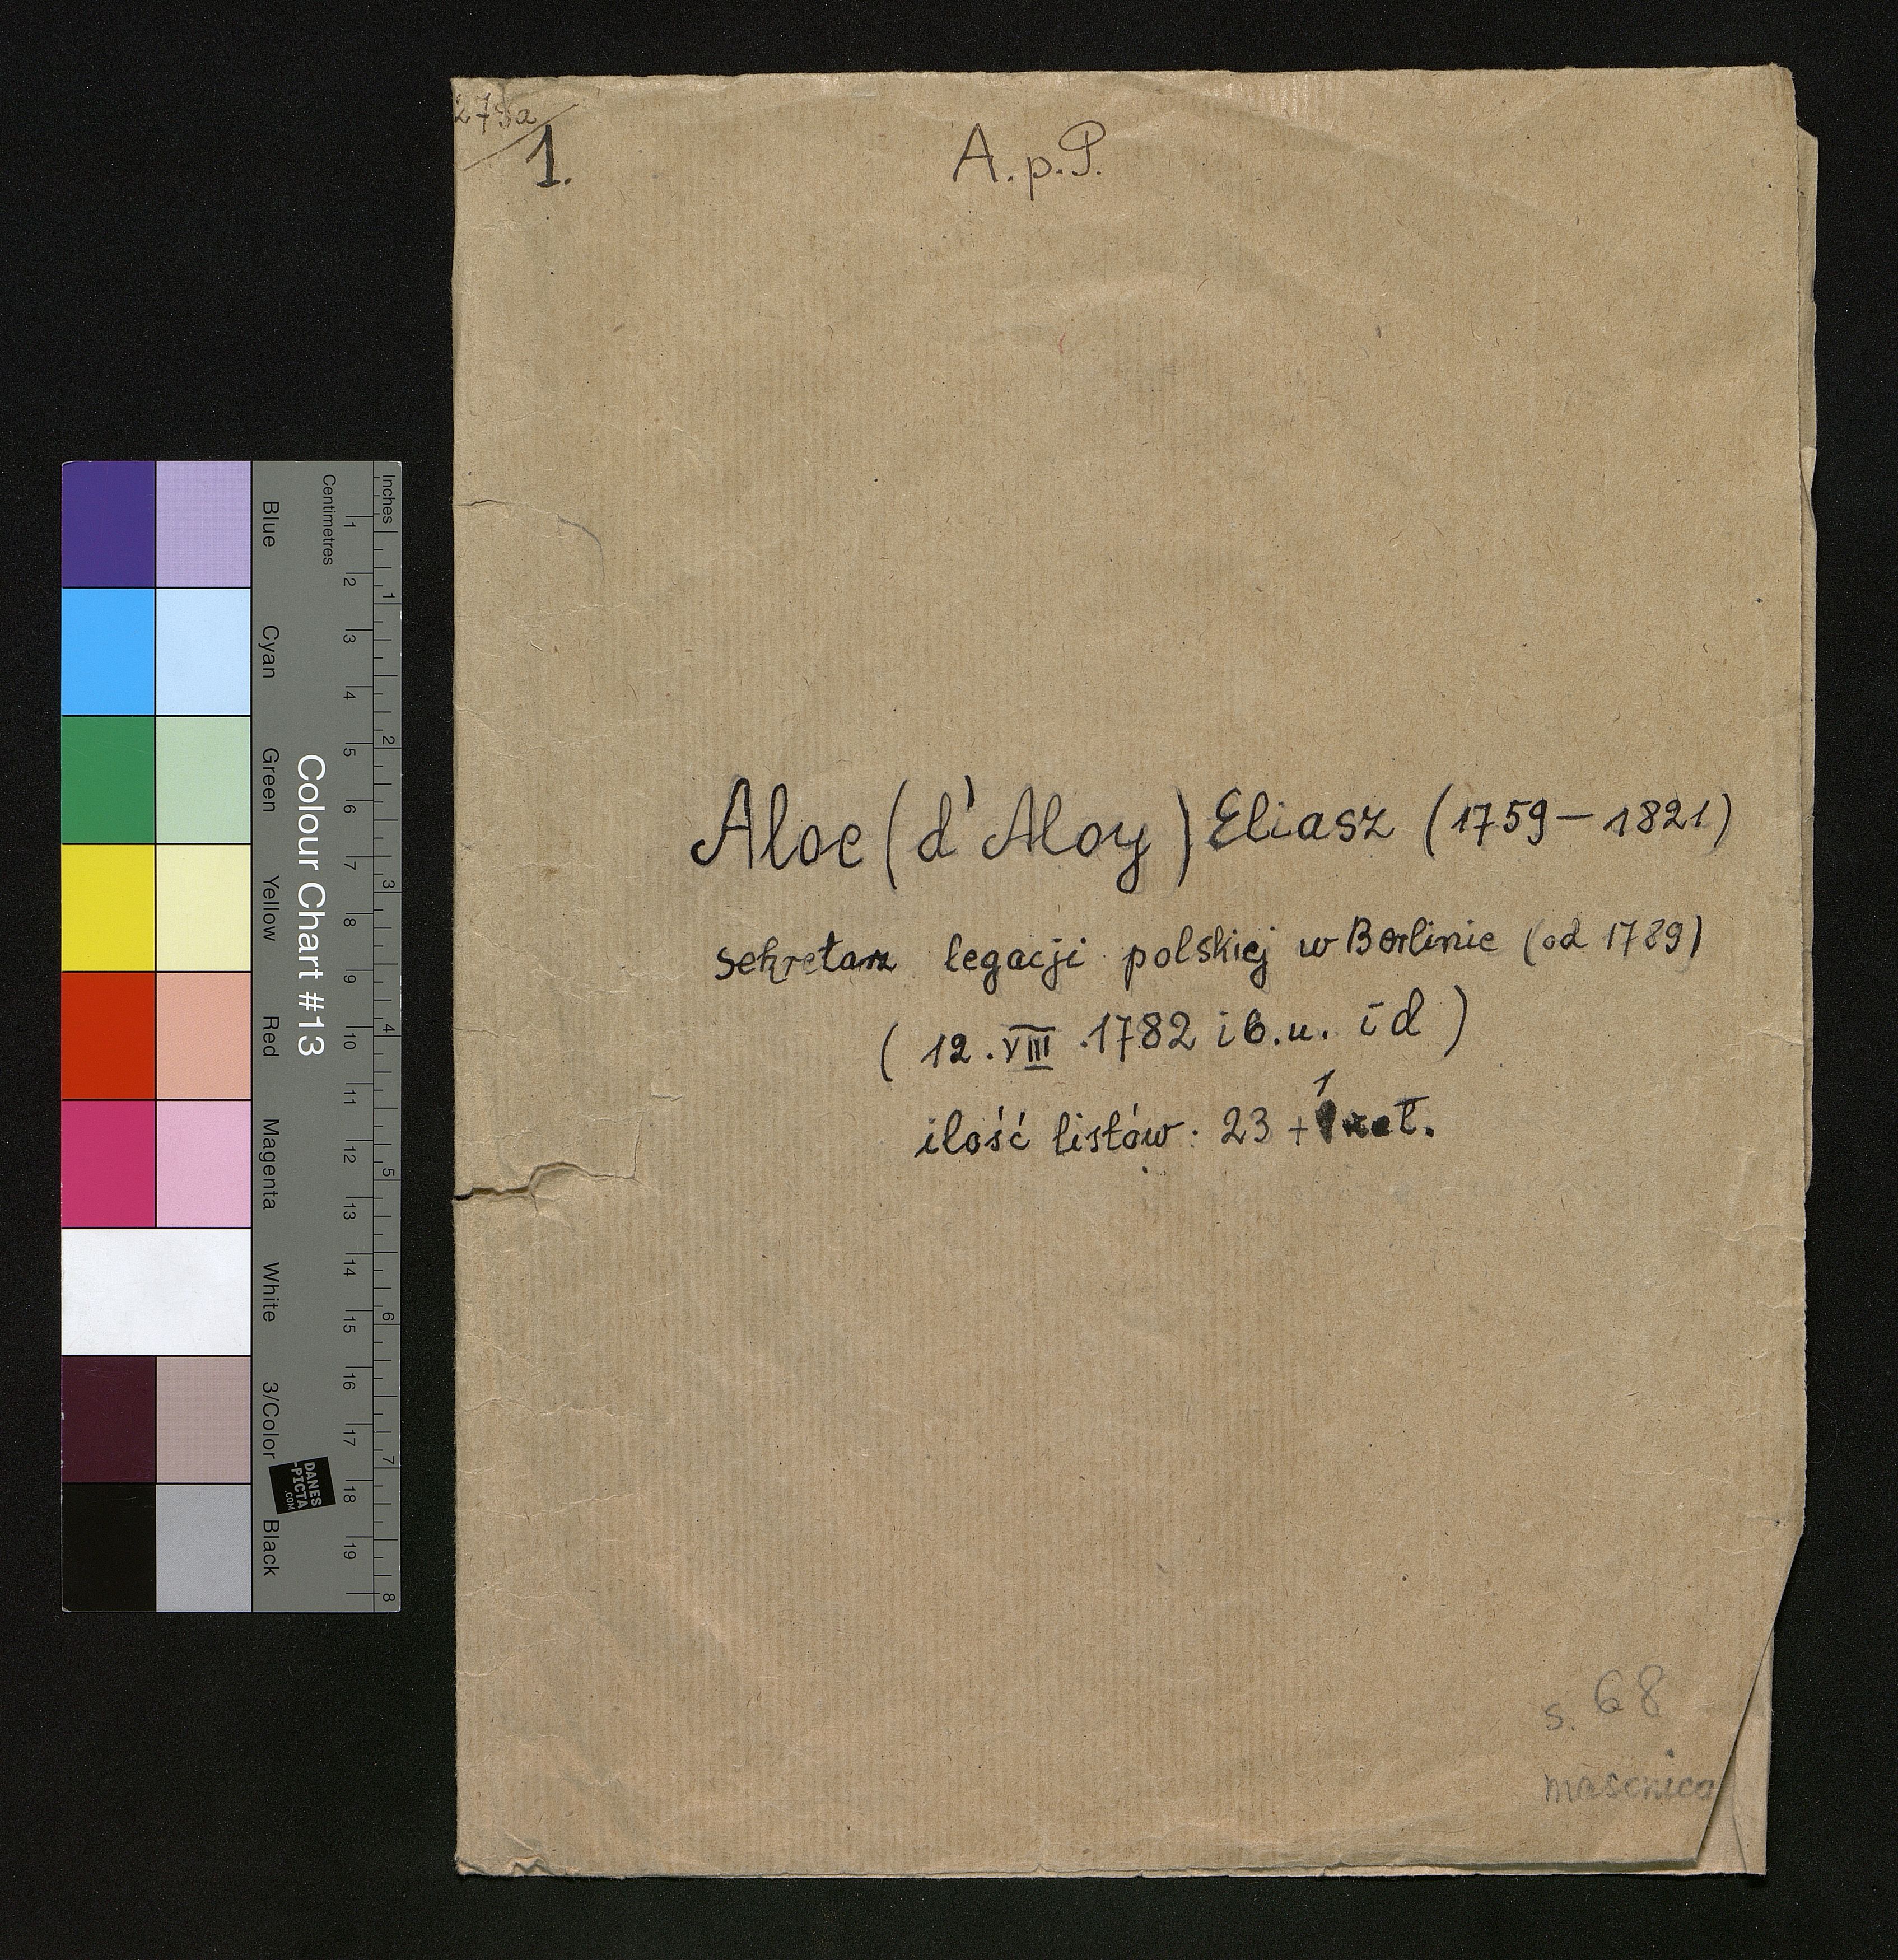 275a
1.
A.p.P.
Aloe (d'Aloy) Eliasz (1759-1821)
sekretarz legacji polskiej w Berlinie (od 1789)
(12.VIII.1782 i b.u. i d)
ilość listów: 23 + 1
s. 68
masonica
Colour Chart #13
Blue
Cyan
Green
Yellow
Red
Magenta
White
3/Color
Black
Centimetres
1 2 3 4 5 6 7 8 9 10 11 12 13 14 15 16 17 18 19
Inches
1 2 3 4 5 6 7 8
DANES
-PICTA
.COM